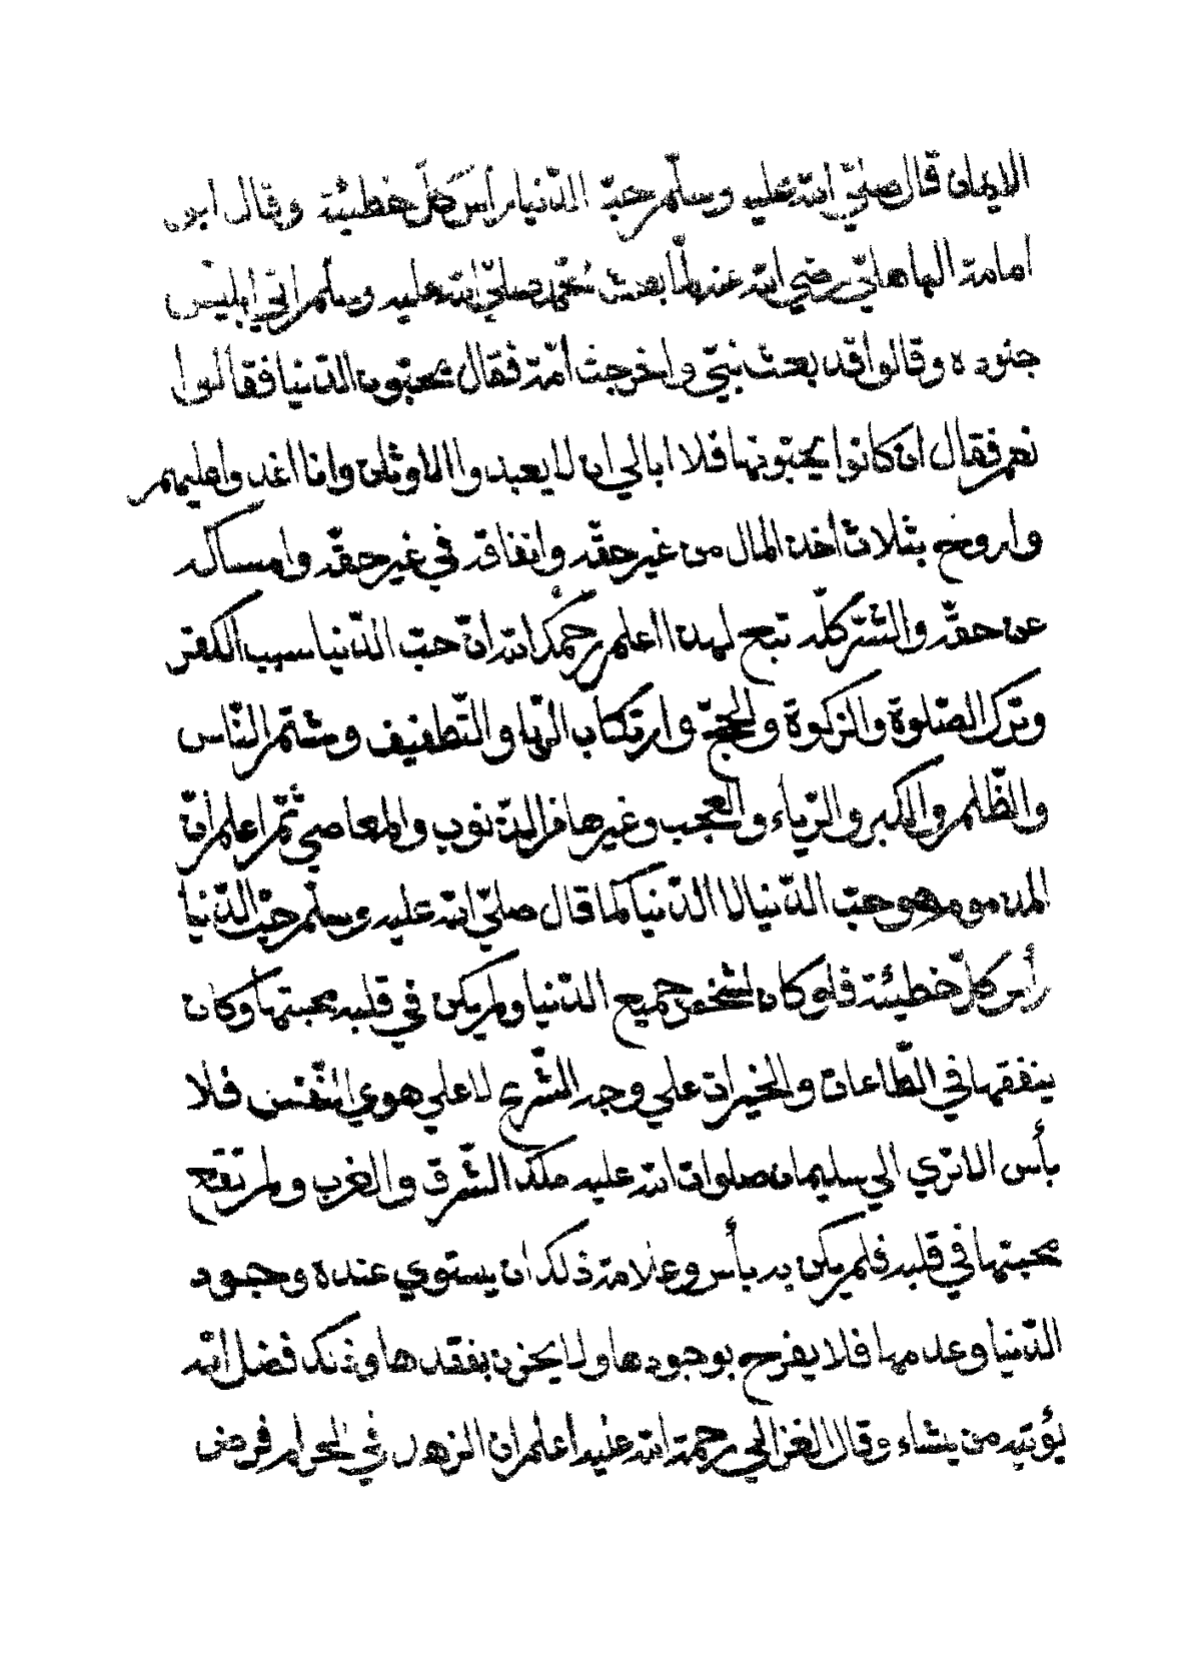 الايمان قال صلّي الله عليه وسلّم حبّ الدّنيا رأس كلّ خطيئة وقال ابو
امامة الباهلي رضي الله عنه لمّا بعث محمّد صلّي الله عليه وسلّم اتي ابليس
جنوده وقالوا قد بعث نبيّ واخرجت امّة فقال يحبّون الدّنيا فقالوا
نعم فقال ان كانوا يحبّونها فلا ابالي ان لا يعبدوا الاوثان وانا اغدوا عليهم
واروح بثلاث اخذ المال من غير حقّه وانفاقه في غير حقّه وامساكه
عن حقّه والشّر كلّه تبع لهذا اعلم رحمك الله انّ حبّ الدّنيا سبب الكفر
وترك الصّلوة والزكوة والحجّ وارتكاب الرّبا والتّطفيف وشتم النّاس
والظّلم والكبر والرّياء والعجب وغيرها من الذّنوب والمعاصي ثمّ اعلم انّ
المذموم هو حبّ الدّنيا لا الدّنيا كما قال صلّي الله عليه وسلّم حبّ الدّنيا
رأس كلّ خطيئة فلو كان لشخص جميع الدّنيا ولم يكن في قلبه محبتها وكان
ينفقها في الطّاعات والخيرات علي وجه الشّرع لا علي هوي النّفس فلا
بأس الا تري الي سليمان صلوات الله عليه ملك الشّرق والغرب ولم تقع
محبتها في قلبه فلم يكن به بأس وعلامة ذلك ان يستوي عنده وجود
الدّنيا وعدمها فلا يفرح بوجودها ولا يحزن بفقدها وذلك فضل الله
يؤتيه من يشاء وقال الغزالي رحمة الله عليه اعلم ان الزهد في الحرام فرض